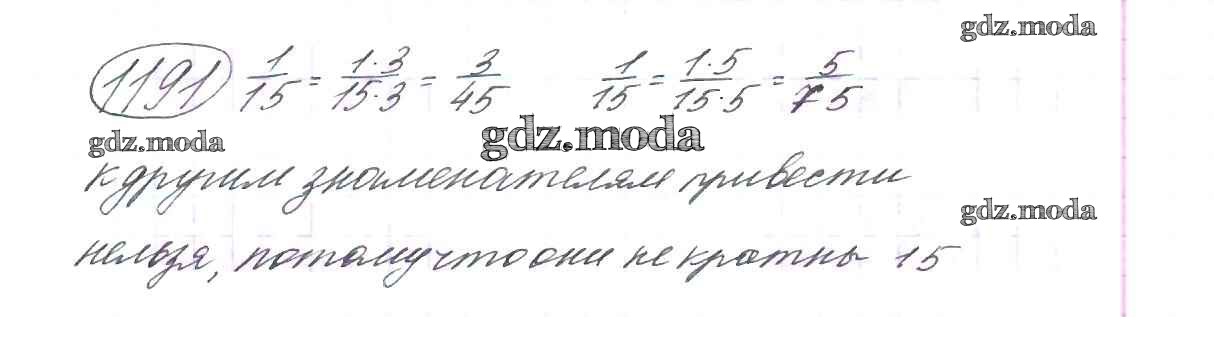 gdz.moda
1191 1/15 = 1·3/15·3 = 3/45 1/15 = 1·5/15·5 = 5/75
gdz.moda gdz.moda
к другим знаменателям привести
gdz.moda
нельзя, потому что они не кратны 15